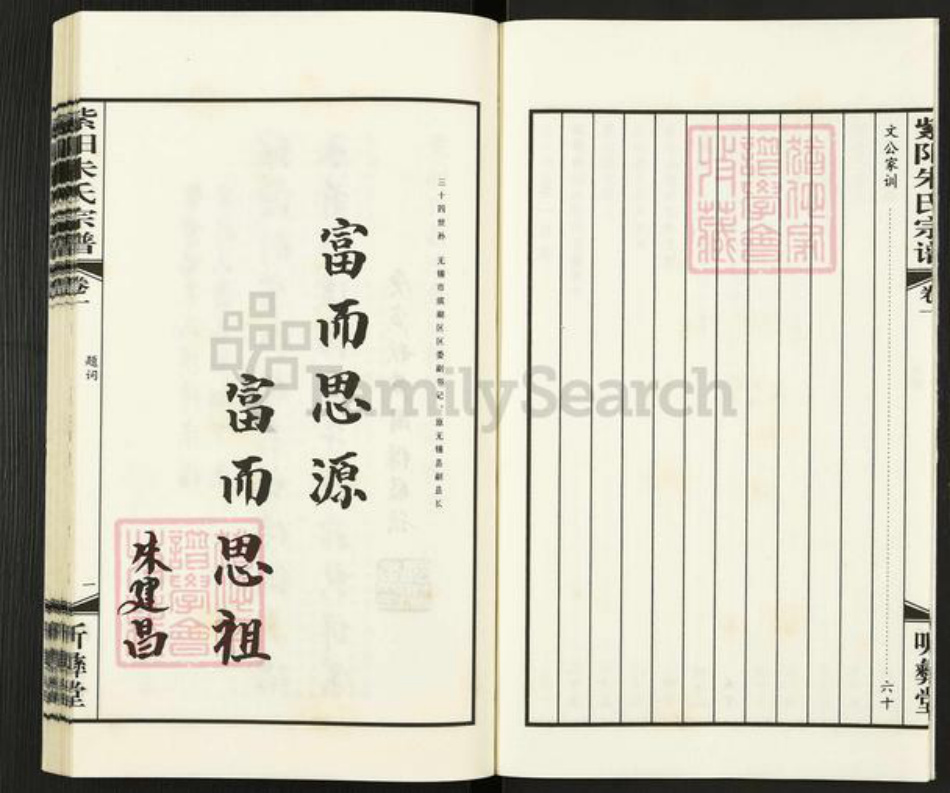 紫阳朱氏宗谱
卷一
文公家训 六十
三十四世孙 无锡市滨湖区区委副书记、原无锡县副县长
富而思源
富而思祖
朱建昌
紫阳朱氏宗谱
卷一
题词
一
堂
FamilySearch
譜學會
收藏
譜學會